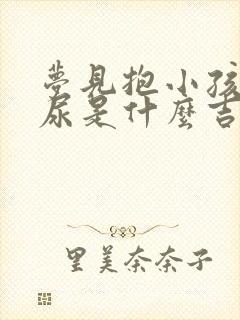 夢見抱小孩
尿是什麼吉
里美奈奈子